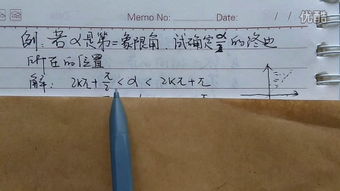 优酷
Memo No:
Date: / /
例:若α是第二象限角,试确定α/2的终边
所在的位置
解: 2kπ+π/2<α<2kπ+π